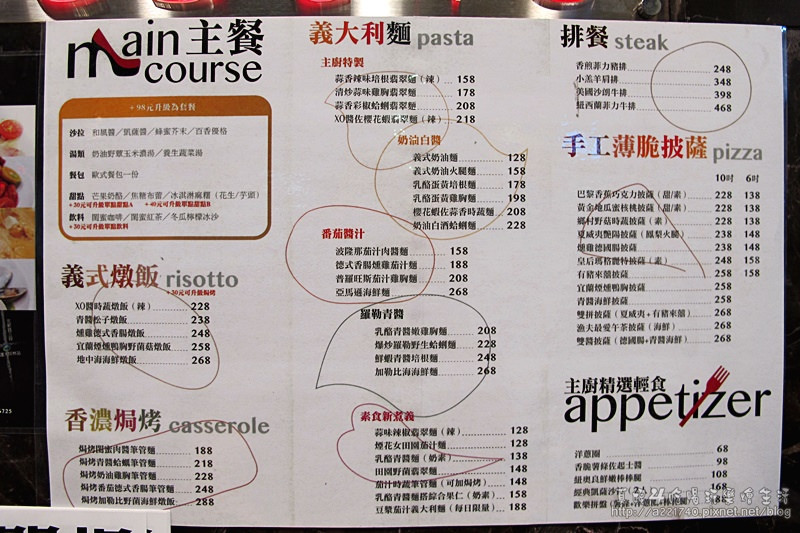 main 主餐
course
+98元升級為套餐
沙拉 和風醬／凱薩醬／蜂蜜芥末／百香優格
湯類 奶油野蕈玉米濃湯／養生蔬菜湯
餐包 歐式餐包一份
甜點 芒果奶酪／焦糖布蕾／冰淇淋麻糬（花生/芋頭）
+30元可升級單點甜點A +40元可升級單點甜點B
飲料 閨蜜咖啡／閨蜜紅茶／冬瓜檸檬冰沙
+50元可升級單點飲料
義式燉飯 risotto
+30元可升級焗烤
XO醬時蔬燉飯（辣） 228
青醬松子燉飯 238
燻雞德式香腸燉飯 248
宜蘭煙燻鴨胸野菌菇燉飯 258
地中海海鮮燉飯 268
香濃焗烤 casserole
焗烤閨蜜肉醬筆管麵 188
焗烤青醬蛤蠣筆管麵 218
焗烤奶油雞胸筆管麵 228
焗烤番茄德式香腸筆管麵 248
焗烤加勒比野蕈海鮮麵 288
義大利麵 pasta
主廚特製
蒜香辣味培根翡翠麵（辣） 158
清炒蒜味雞胸翡翠麵 178
蒜香彩椒蛤蠣翡翠麵 208
XO醬佐櫻花蝦翡翠麵（辣） 218
奶油白醬
義式奶油麵 128
義式奶油火腿麵 158
乳酪蛋黃培根麵 178
乳酪蛋黃雞胸麵 198
櫻花蝦佐蒜香時蔬麵 208
奶油白酒蛤蠣麵 228
番茄醬汁
波隆那茄汁肉醬麵 158
德式香腸燻雞茄汁麵 188
普羅旺斯茄汁雞胸麵 208
亞馬遜海鮮麵 268
羅勒青醬
乳酪青醬嫩雞胸麵 208
爆炒羅勒野生蛤蠣麵 228
鮮蝦青醬培根麵 248
加勒比海海鮮麵 268
素食新煮義
蒜味辣椒翡翠麵（辣） 128
煙花女田園茄汁麵 128
乳酪青醬麵（奶素） 138
田園野菌翡翠麵 148
茄汁時蔬筆管麵（可加焗烤） 148
乳酪青醬麵搭綜合果仁（奶素） 158
豆漿茄汁義大利麵（每日限量） 188
排餐 steak
香煎菲力豬排 248
小羔羊肩排 348
美國沙朗牛排 398
紐西蘭菲力牛排 468
手工薄脆披薩 pizza
10吋 6吋
巴黎香蕉巧克力披薩（甜/素） 228 138
黃金地瓜蜜核桃披薩（甜/素） 228 138
鄉村野菇時蔬披薩（素） 228 138
夏威夷艷陽披薩（鳳梨火腿） 238 148
燻雞德國腸披薩 238 148
皇后瑪格麗特披薩（素） 248 158
有豬來囍披薩 258 158
宜蘭煙燻鴨胸披薩 258
青醬海鮮披薩 258
雙拼披薩（夏威夷+有豬來囍） 268
漁夫最愛午茶披薩（海鮮） 268
雙醬披薩（德國腸+青醬海鮮） 268
主廚精選輕食
appetizer
洋蔥圈 68
香脆薯條佐起士醬 98
紐奧良鮮嫩棒棒腿 108
經典凱薩沙拉（2人） 168
188
http://a221740.pixnet.net/blog